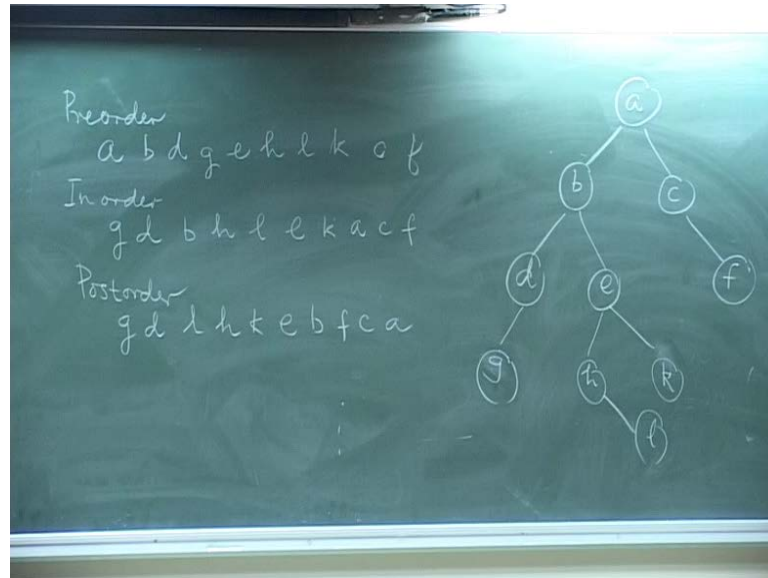 Preorder
a b d g e h l k c f
Inorder
g d b h l e k a c f
Postorder
g d l h k e b f c a
a
b c
d e f
g h k
l